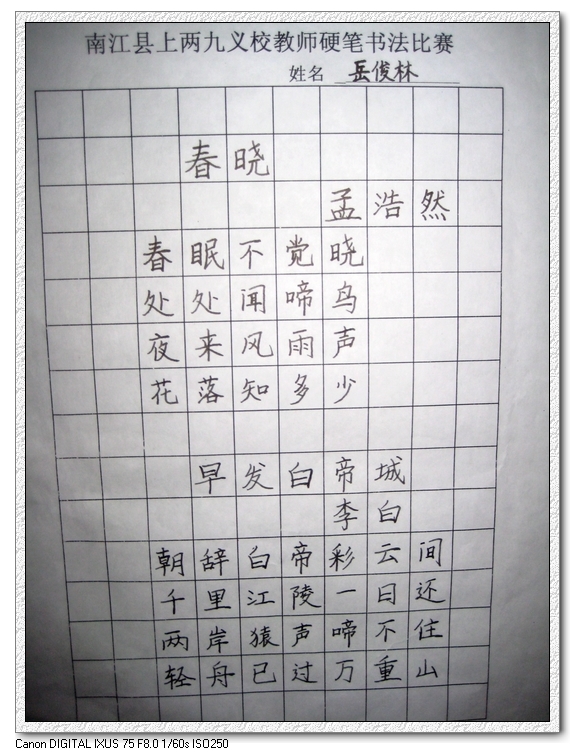 南江县上两九义校教师硬笔书法比赛
姓名 岳俊林
春晓
孟浩然
春眠不觉晓
处处闻啼鸟
夜来风雨声
花落知多少
早发白帝城
李白
朝辞白帝彩云间
千里江陵一日还
两岸猿声啼不住
轻舟已过万重山
Canon DIGITAL IXUS 75 F8.0 1/60s ISO250